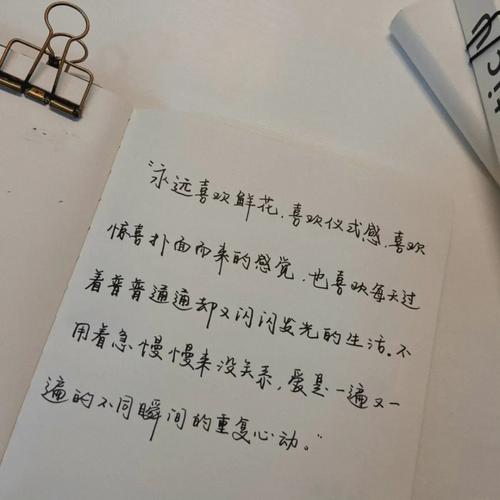 “永远喜欢鲜花,喜欢仪式感,喜欢
惊喜扑面而来的感觉,也喜欢每天过
着普普通通却又闪闪发光的生活。不
用着急慢慢来没关系,爱是一遍又一
遍的不同瞬间的重复心动。”